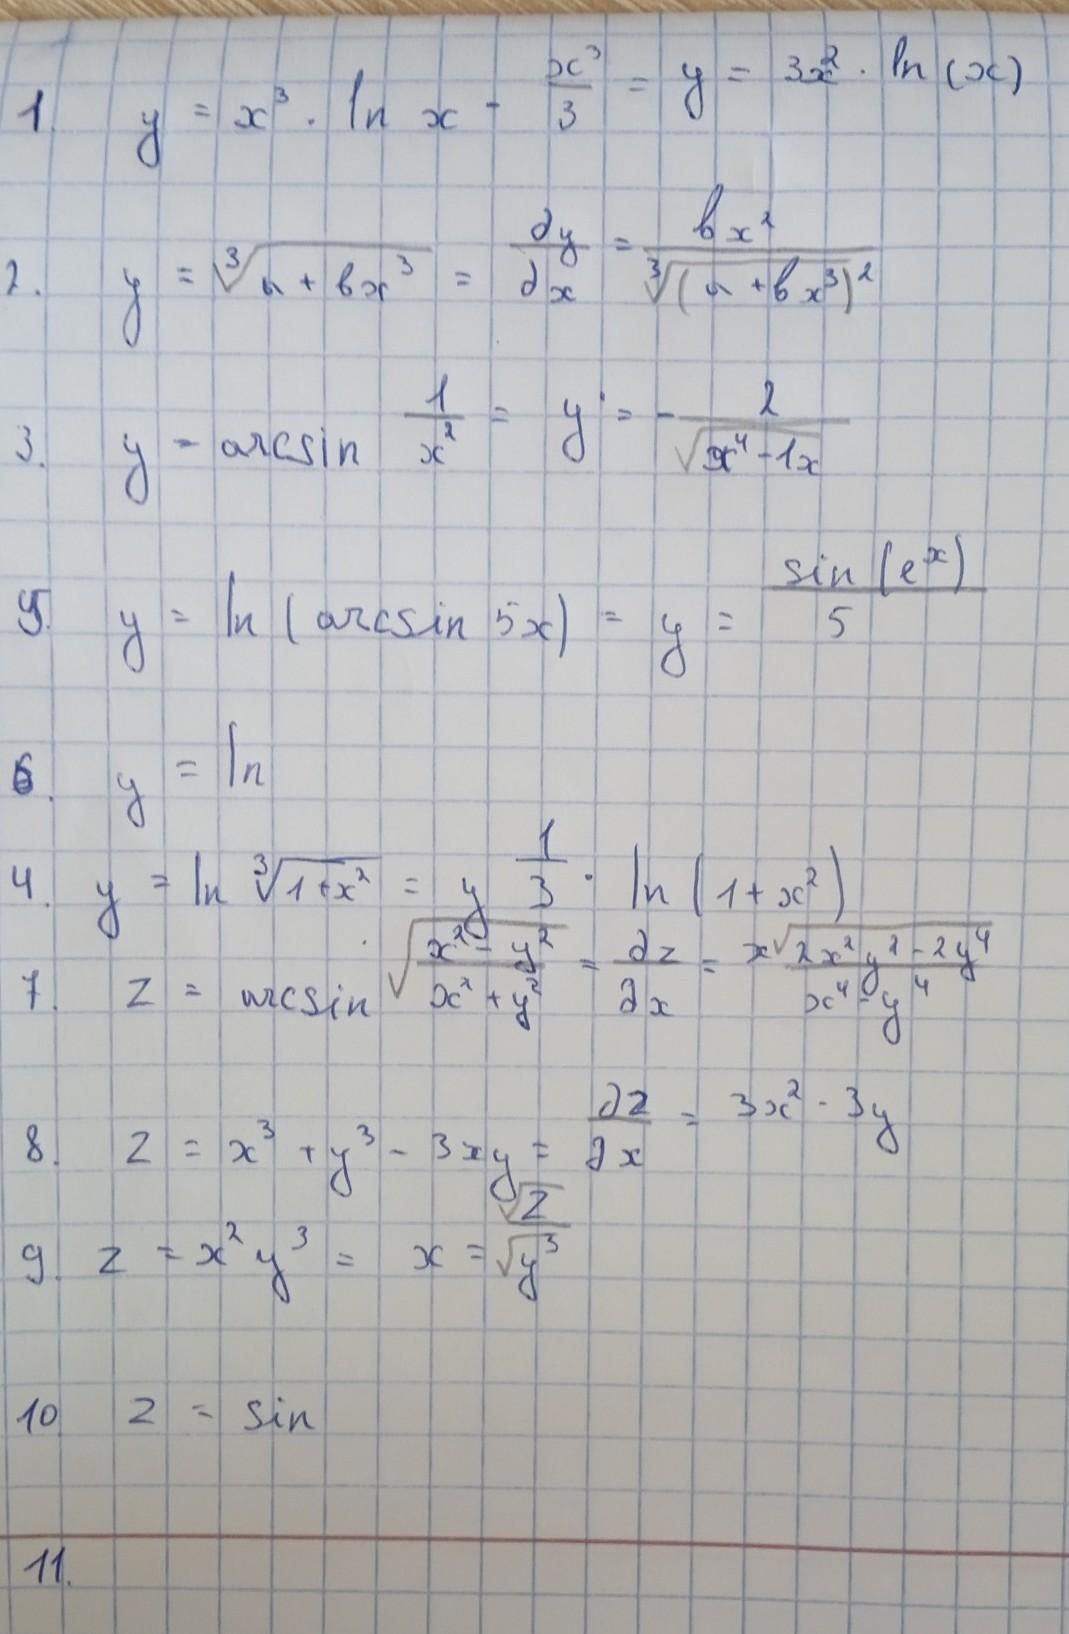 1. y = x³ · ln x - x³/3 = y = 3x² · ln(x)
2. y = ∛(a + bx³) = ∂y/∂x = bx²/∛(a + bx³)²
3. y = arcsin 1/x² = y' = - 2/√(x⁴-1x)
5. y = ln (arcsin 5x) = y = sin(eˣ)/5
6. y = ln
4 y = ln ∛(1+x²) = y 1/3 · ln (1+x²)
7. z = arcsin √((x²-y²)/(x²+y²)) = ∂z/∂x = x√(2x²y²-2y⁴)/(x⁴-y⁴)
8. z = x³ + y³ - 3xy = ∂z/∂x = 3x² - 3y
9. z = x² y³ = x = √z/√y³
10 z = sin
11.